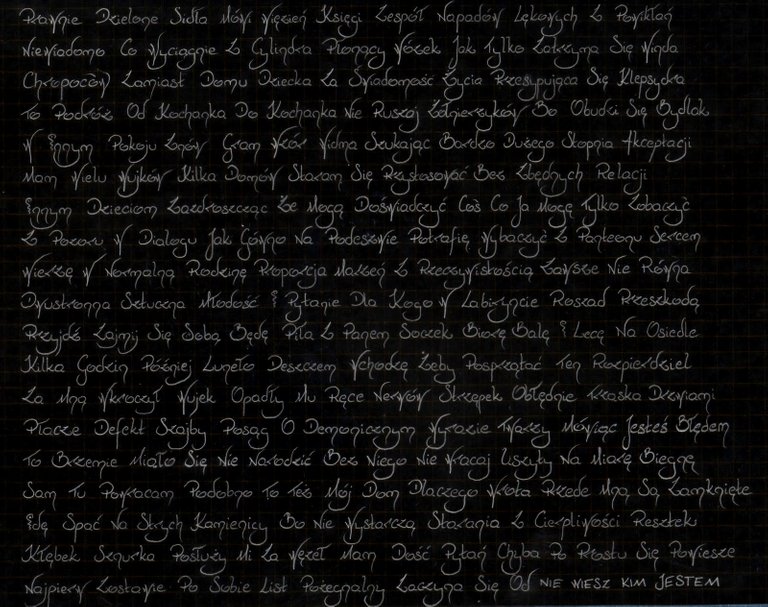 Prawnie Dzielone Sidła Mówi Więzień Księgi Zespół Napadów Lękowych Z Powikłań
Niewiadomo Co Wyciągnie Z Cylindra Płonący Wózek Jak Tylko Zatrzyma Się Winda
Chłopców Zamiast Domu Dziecka Za Świadomość Życia Przesypująca Się Klepsydra
To Podróż Od Kochanka Do Kochanka Nie Ruszaj Żołnierzyków Bo Obudzi Się Bydlak
W Innym Pokoju Znów Gram Wzór Widma Szukając Bardzo Dużego Stopnia Akceptacji
Mam Wielu Wujków Kilka Domów Staram Się Przystosować Bez Zbędnych Relacji
Innym Dzieciom Zazdroszcząc Że Mogą Doświadczyć Coś Co Ja Mogę Tylko Zobaczyć
Z Pozoru W Dialogu Jak Gówno Na Podeszwie Potrafię Wybaczyć Z Panteonu Sercem
Wierzę W Normalną Rodzinę Proporcja Marzeń Z Rzeczywistością Zawsze Nie Równa
Dwustronna Sztuczna Młodość I Pytanie Dla Kogo W Labiryncie Rozsad Przeszkodą
Przyjdź Zajmij Się Sobą Będę Piła Z Panem Soczek Biorę Balę I Lecę Na Osiedle
Kilka Godzin Później Lunęło Deszczem Wchodzę Żeby Posprzątać Ten Rozpierdziel
Za Mną Wkroczył Wujek Opadły Mu Ręce Nerwów Strzępek Obłędnie Trzaska Drzwiami
Płacze Defekt Szajby Posąg O Demonicznym Wyrazie Twarzy Mówiąc Jesteś Błędem
To Brzemię Miało Się Nie Narodzić Bez Niego Nie Wracaj Uszyty Na Miarę Biegnę
Sam Tu Powracam Podobno To Też Mój Dom Dlaczego Wrota Przede Mną Są Zamknięte
Idę Spać Na Strych Kamienicy Bo Nie Wystarczą Starania Z Cierpliwości Resztek
Kłębek Sznurka Posłuży Mi Za Węzeł Mam Dość Pytań Chyba Po Prostu Się Powieszę
Najpierw Zostawię Po Sobie List Pożegnalny Zaczyna Się Od NIE WIESZ KIM JESTEM